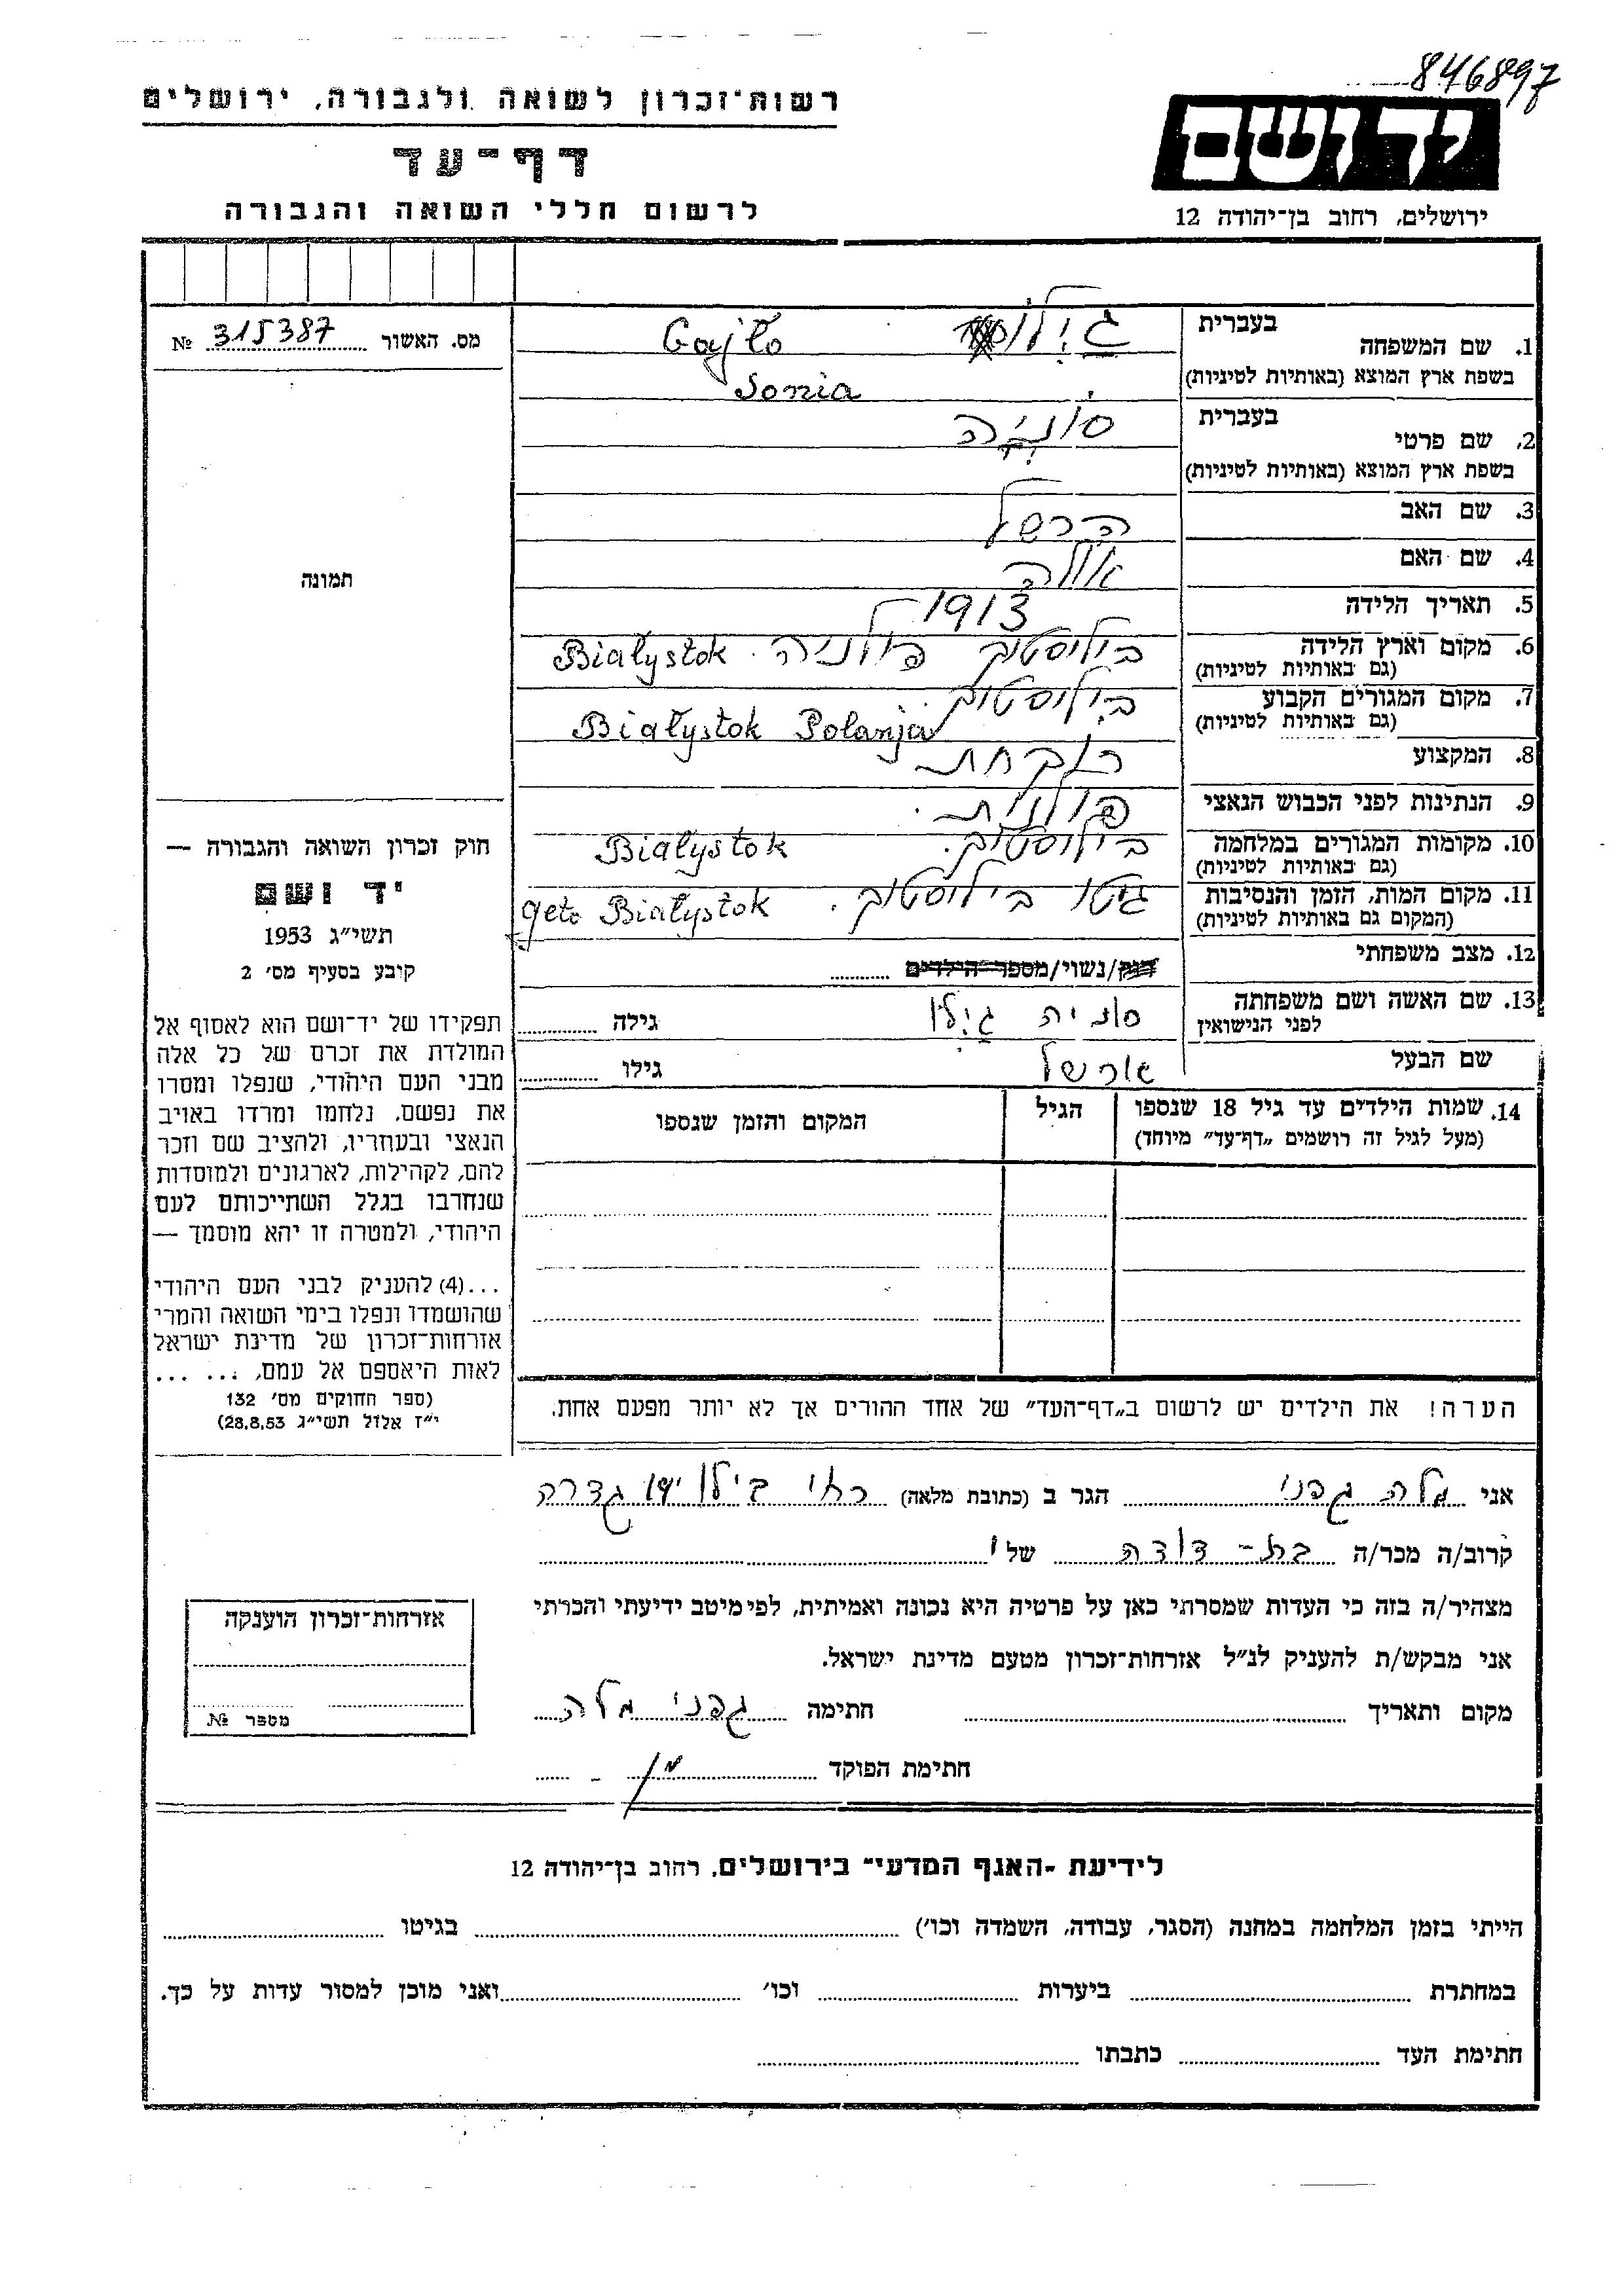 846897
רשות־זכרון לשואה ולגבורה, ירושלים
יד ושם
דף־עד
לרשום חללי השואה והגבורה
ירושלים, רחוב בן־יהודה 12
מס. האשור 315387 №
תמונה
חוק זכרון השואה והגבורה —
יד ושם
תשי״ג 1953
קובע בסעיף מס׳ 2
תפקידו של יד־ושם הוא לאסוף אל
המולדת את זכרם של כל אלה
מבני העם היהודי, שנפלו ומסרו
את נפשם, נלחמו ומרדו באויב
הנאצי ובעוזריו, ולהציב שם וזכר
להם, לקהילות, לארגונים ולמוסדות
שנחרבו בגלל השתייכותם לעם
היהודי, ולמטרה זו יהא מוסמך —
...(4) להעניק לבני העם היהודי
שהושמדו ונפלו בימי השואה והמרי
אזרחות־זכרון של מדינת ישראל
לאות היאספם אל עמם, ... ...
(ספר החוקים מס׳ 132
י״ז אלול תשי״ג 28.8.53)
בעברית
1. שם המשפחה גילו Gajło
בשפת ארץ המוצא (באותיות לטיניות) Sonia
בעברית סוניה
2. שם פרטי
בשפת ארץ המוצא (באותיות לטיניות)
3. שם האב הרשל
4. שם האם אלה
5. תאריך הלידה 1913
6. מקום וארץ הלידה ביליסטוק פולניה. Białystok
(גם באותיות לטיניות)
7. מקום המגורים הקבוע ביליסטוק.
(גם באותיות לטיניות) Białystok Polanja
8. המקצוע רוקחת
9. הנתינות לפני הכבוש הנאצי פולנית.
10. מקומות המגורים במלחמה ביליסטוק. Białystok
(גם באותיות לטיניות)
11. מקום המות, הזמן והנסיבות גיטו ביליסטוק. geto Białystok
(המקום גם באותיות לטיניות)
12. מצב משפחתי רווק/נשוי/מספר הילדים
13. שם האשה ושם משפחתה סוניה גילו גילה
לפני הנישואין
שם הבעל גילו
14. שמות הילדים עד גיל 18 שנספו הגיל המקום והזמן שנספו
(מעל לגיל זה רושמים „דף־עד״ מיוחד)
הערה! את הילדים יש לרשום ב„דף־העד״ של אחד ההורים אך לא יותר מפעם אחת.
אני מלה גפני הגר ב (כתובת מלאה) רח׳ בילו גדרה
קרוב/ה מכר/ה בת־דודה של
מצהיר/ה בזה כי העדות שמסרתי כאן על פרטיה היא נכונה ואמיתית, לפי מיטב ידיעתי והכרתי
אני מבקש/ת להעניק לנ״ל אזרחות־זכרון מטעם מדינת ישראל.
מקום ותאריך חתימה גפני מלה
חתימת הפוקד
אזרחות־זכרון הוענקה
מספר №
לידיעת „האגף המדעי״ בירושלים, רחוב בן־יהודה 12
הייתי בזמן המלחמה במחנה (הסגר, עבודה, השמדה וכו׳) בגיטו
במחתרת ביערות וכו׳ ואני מוכן למסור עדות על כך.
חתימת העד כתבתו